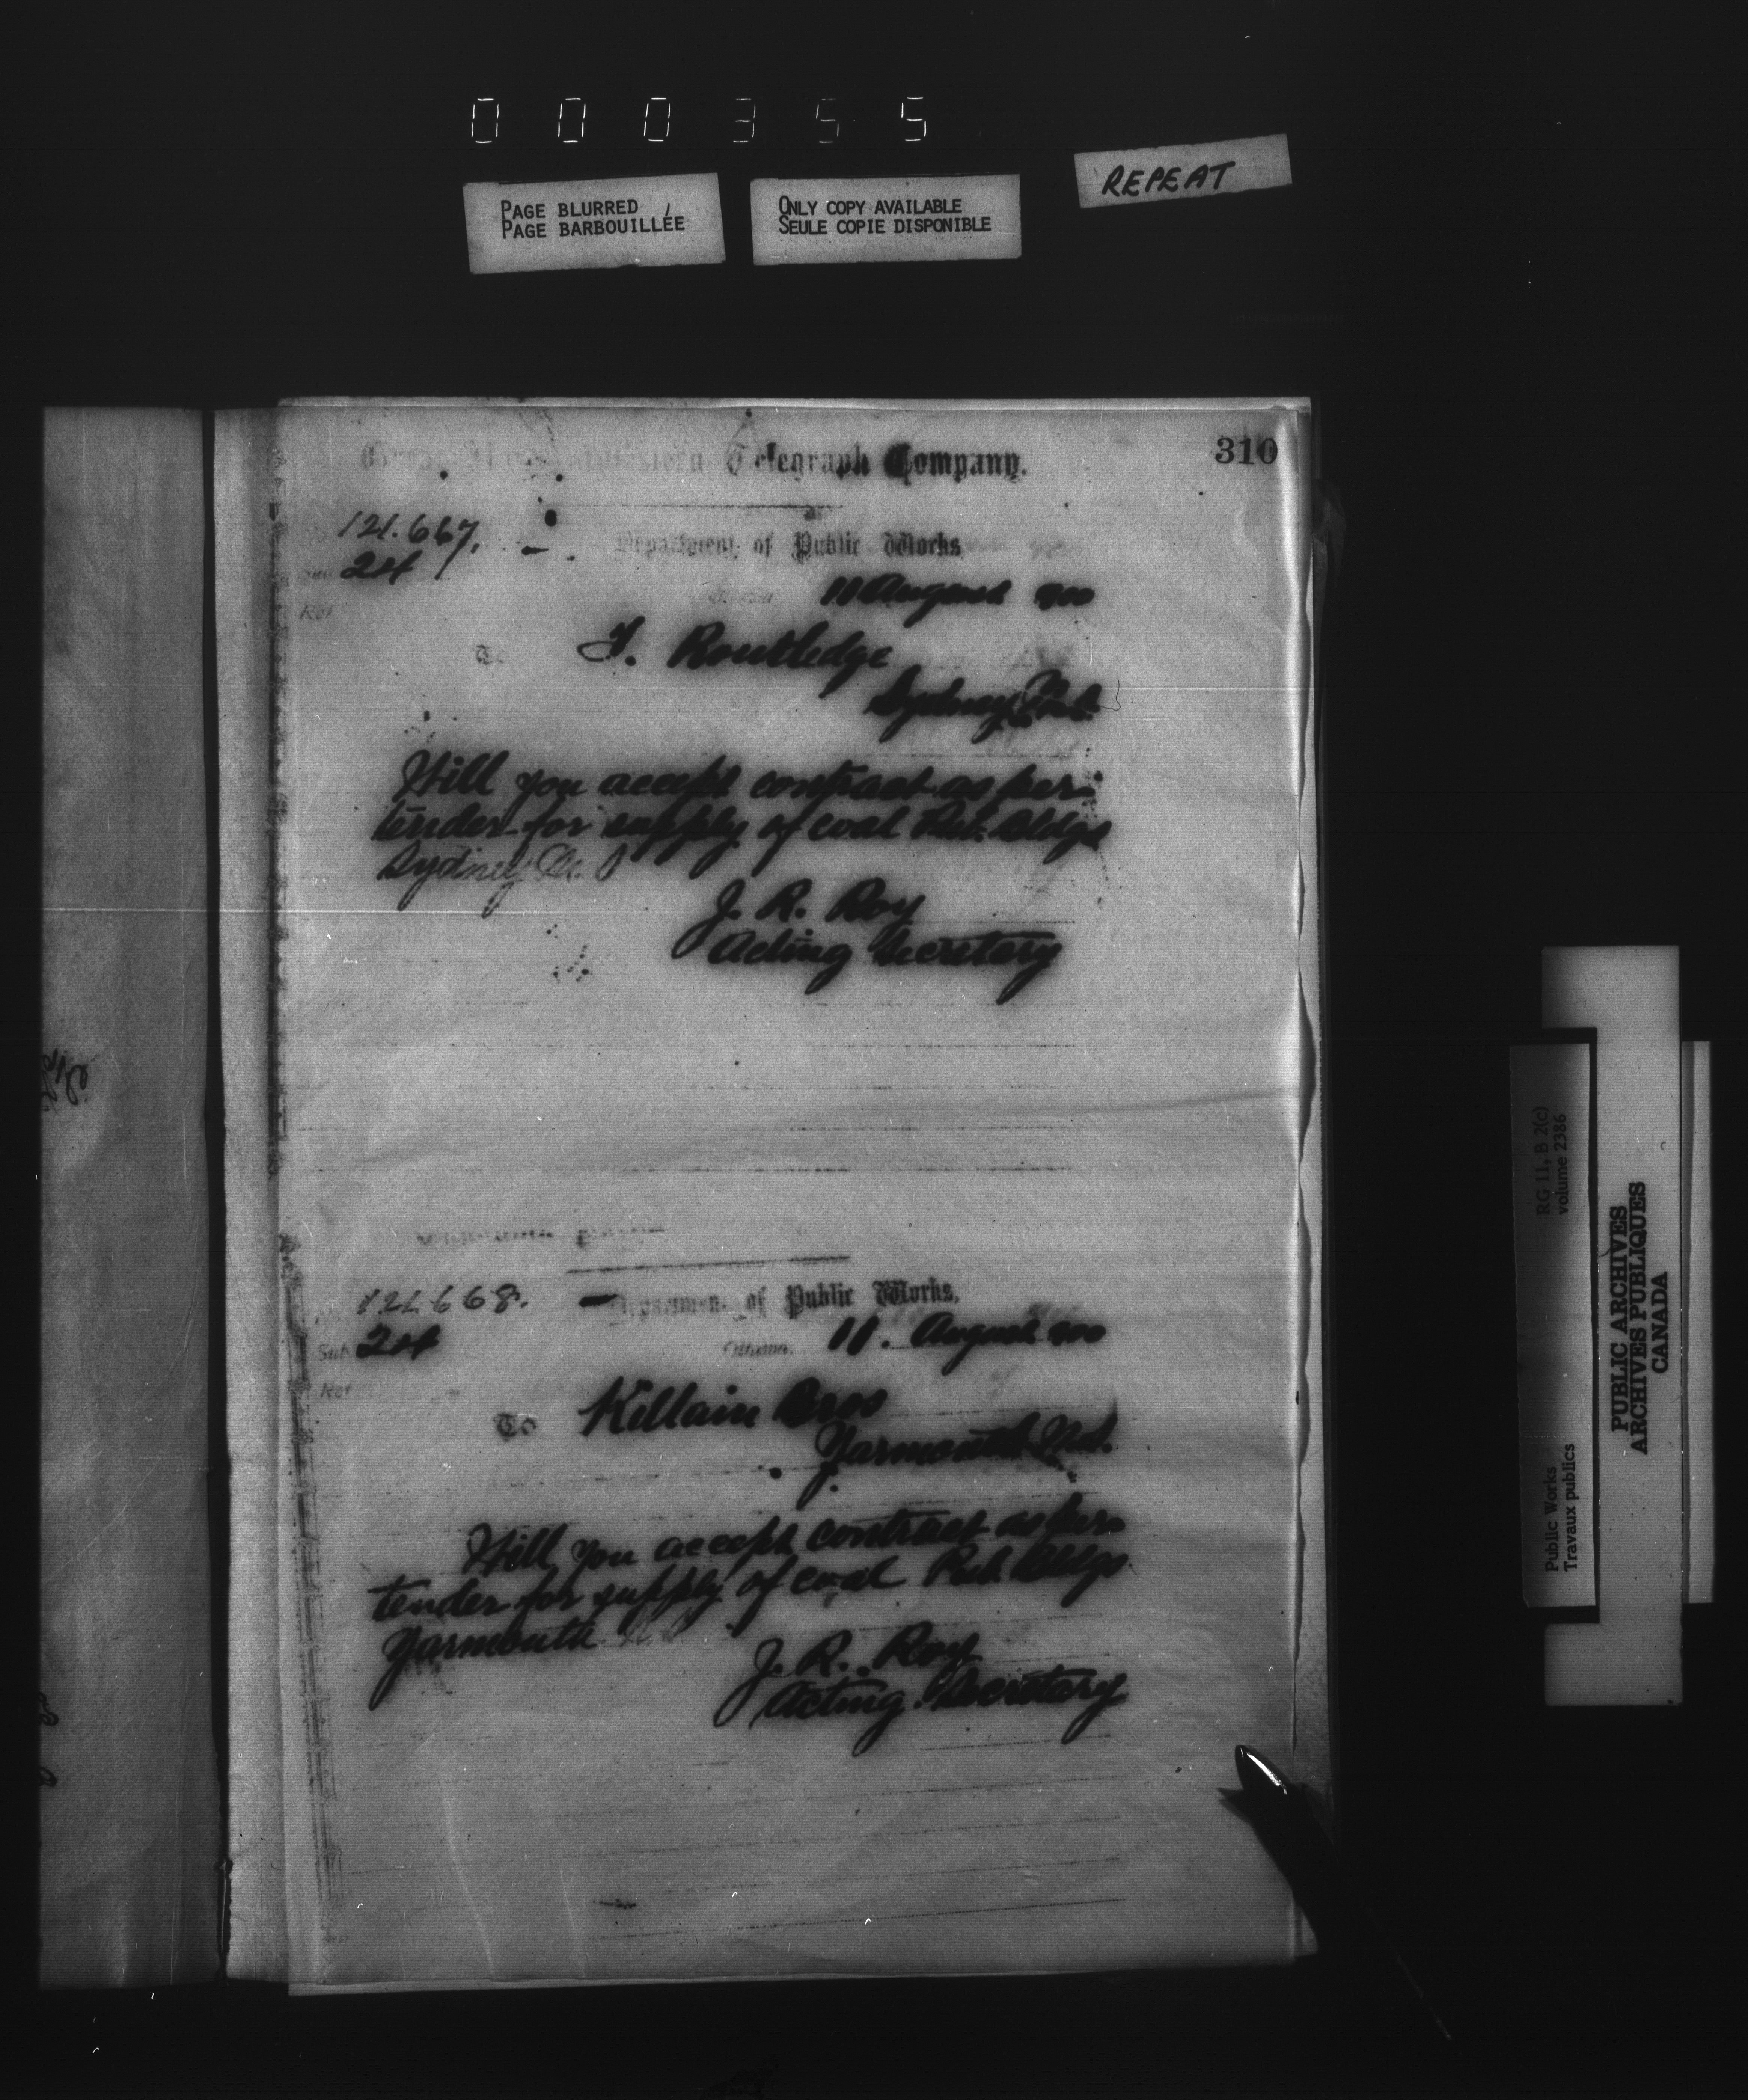 000355
PAGE BLURRED
PAGE BARBOUILLÉE
ONLY COPY AVAILABLE
SEULE COPIE DISPONIBLE
REPEAT
310
Telegraph Company.
121.667.
24
Ref
Department of Public Works
11 August 900
To
F. Routledge
Sydney N.S.
Will you accept contract as per
tender for supply of coal Pub. Bldgs
Sydney
J. R. Roy
Acting Secretary
121668.
Department of Public Works,
Sub 24
Ottawa, 11. August 900
Ref
To Killain Bros
Yarmouth N.S.
Will you accept contract as per
tender for supply of coal Pub. Bldgs
Yarmouth
J. R. Roy
Acting Secretary
RG 11, B 2(c)
volume 2386
Public Works
Travaux publics
PUBLIC ARCHIVES
ARCHIVES PUBLIQUES
CANADA